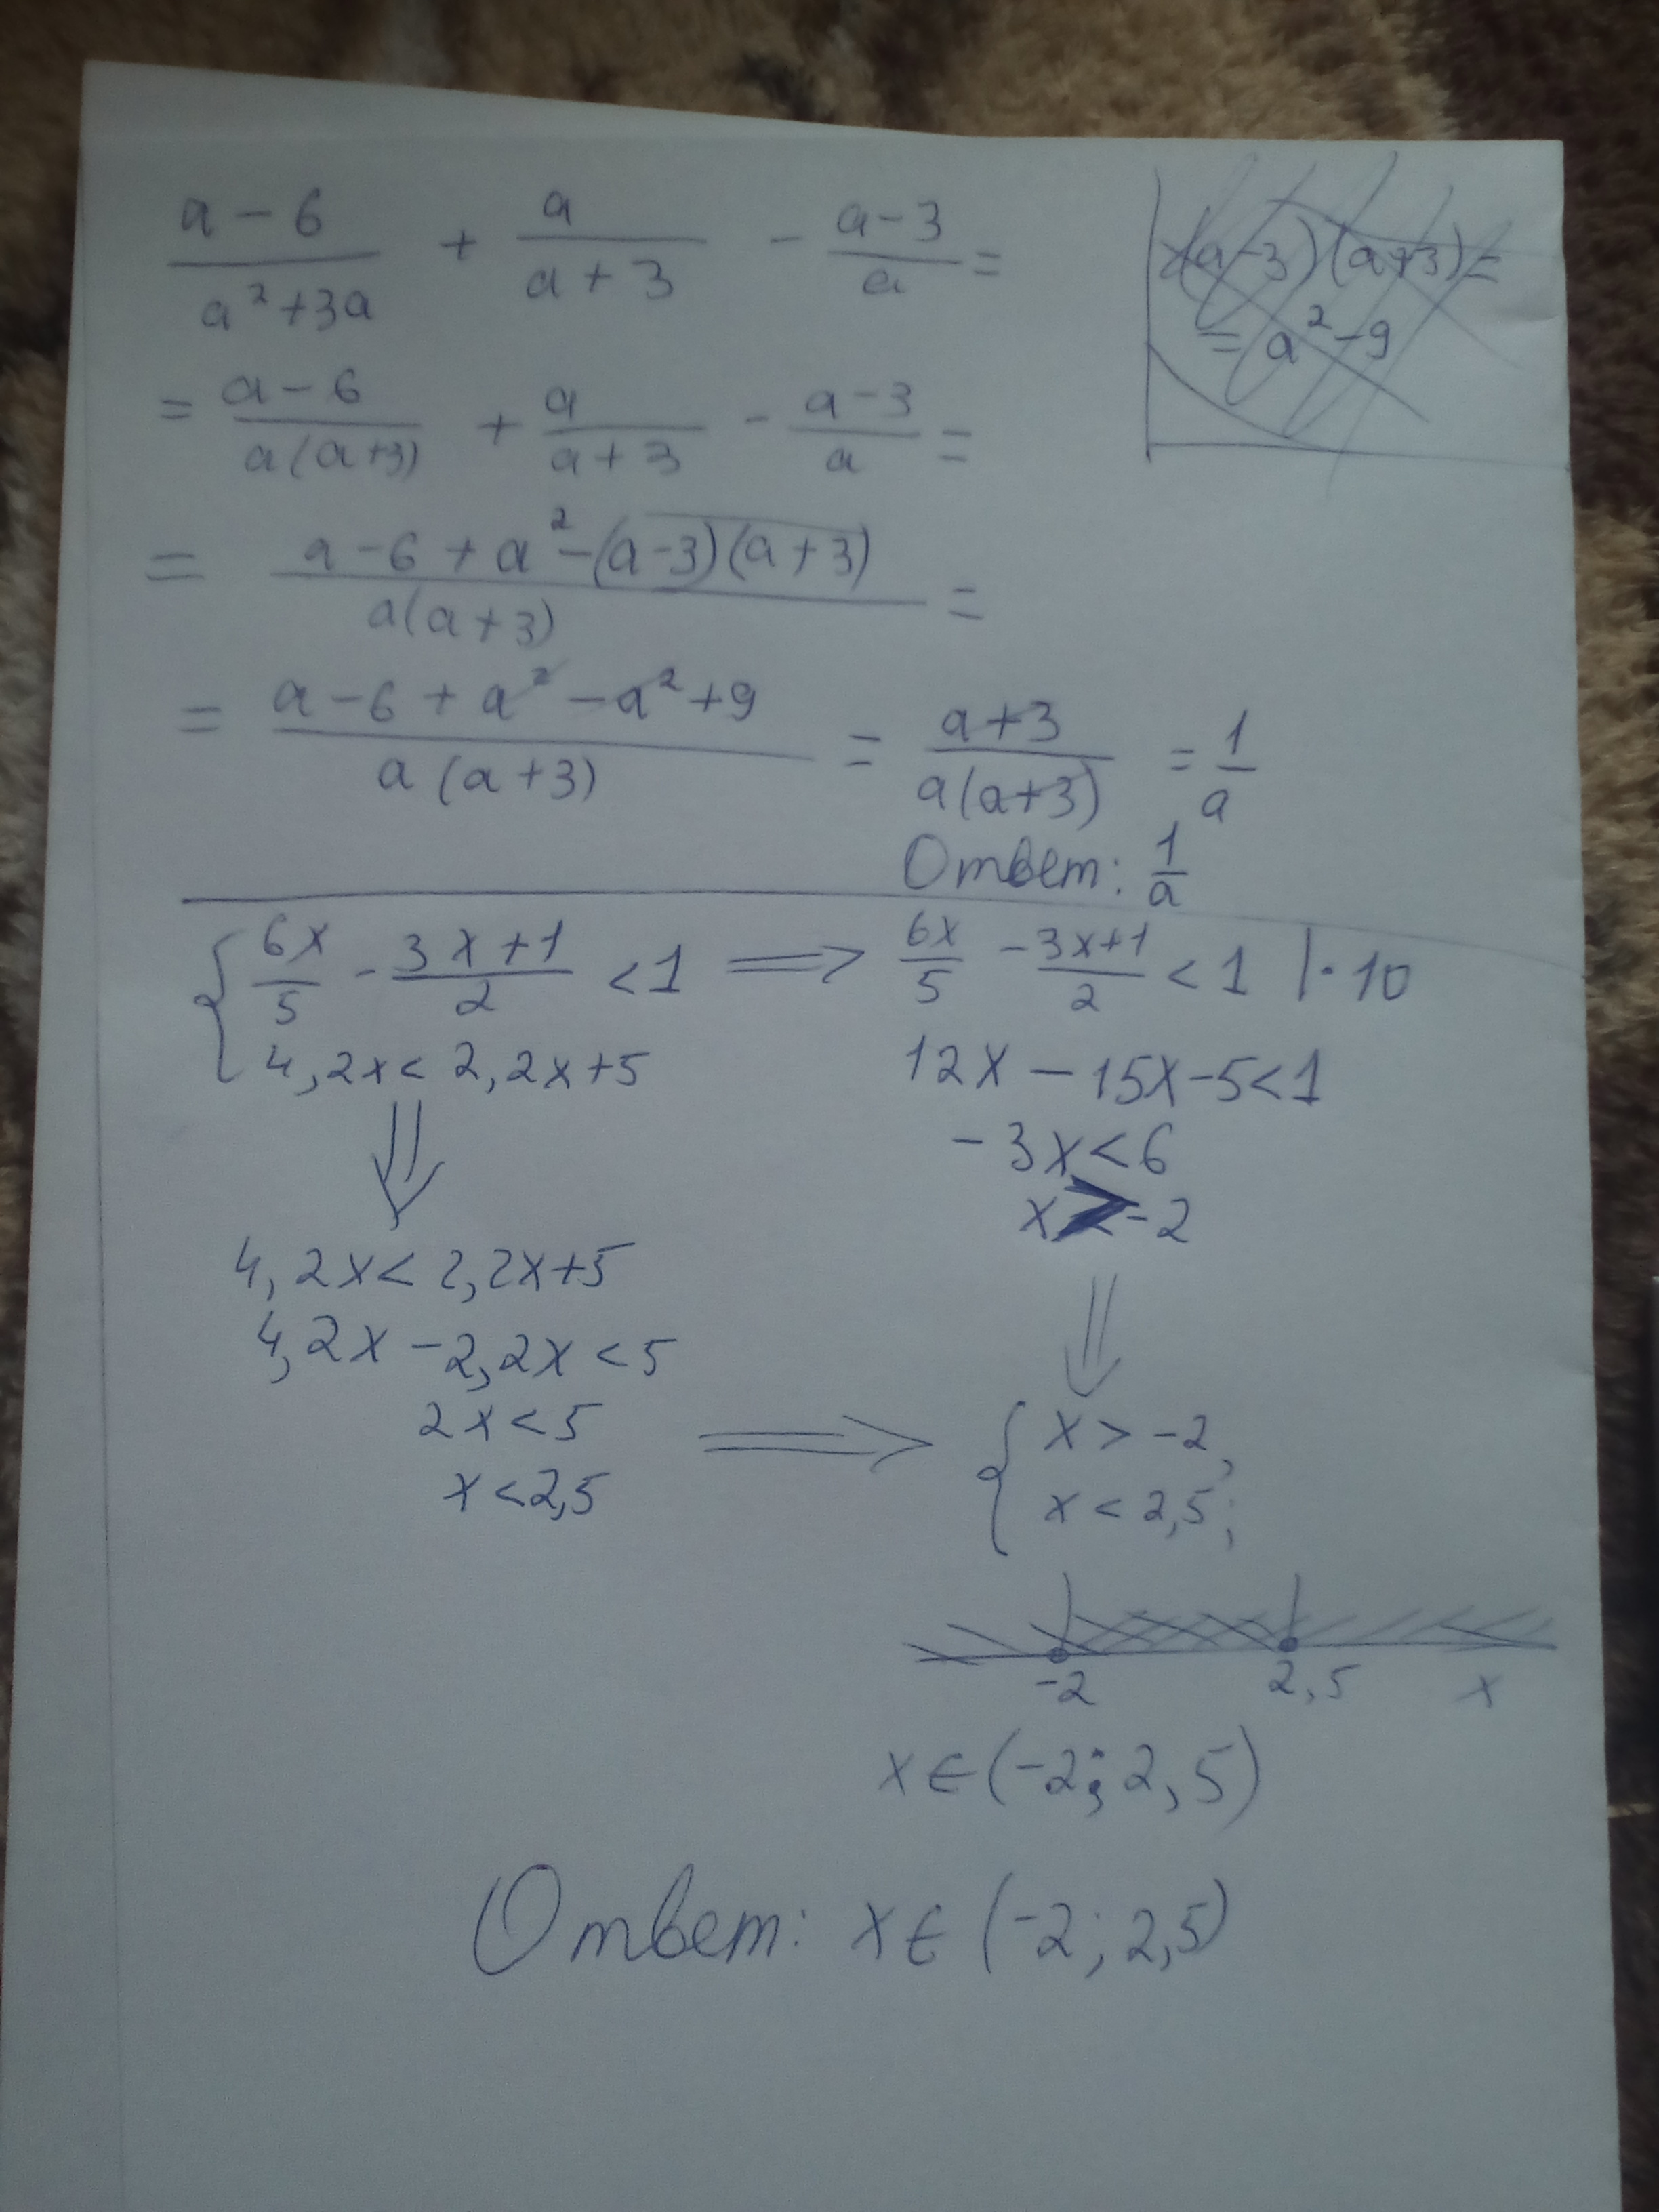 (a-3)(a+3)=
= a²-9
(a-6)/(a²+3a) + a/(a+3) - (a-3)/a =
= (a-6)/(a(a+3)) + a/(a+3) - (a-3)/a =
= (a-6+a²-(a-3)(a+3))/(a(a+3)) =
= (a-6+a²-a²+9)/(a(a+3)) = (a+3)/(a(a+3)) = 1/a
Ответ: 1/a
{ 6x/5 - (3x+1)/2 < 1 ⟹ 6x/5 - (3x+1)/2 < 1 |·10
4,2x < 2,2x+5
12x - 15x - 5 < 1
-3x < 6
x > -2
4,2x < 2,2x+5
4,2x - 2,2x < 5
2x < 5
x < 2,5
{ x > -2,
x < 2,5;
-2 2,5 x
x ∈ (-2; 2,5)
Ответ: x ∈ (-2; 2,5)